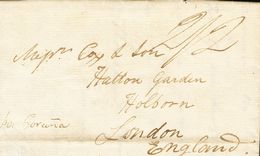 2/2
Messrs Cox & Son
Hatton Garden
Holborn
London
England.
per Coruña